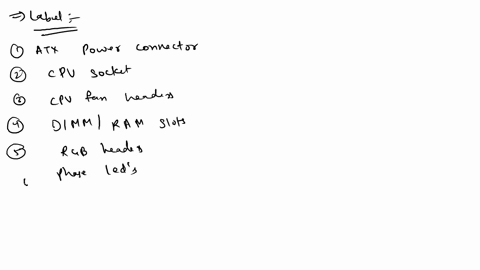 ⇒ Label:-
① ATX Power connector
② CPU Socket
③ CPU fan headers
④ DIMM/RAM slots
⑤ RGB headers
( Phase led's